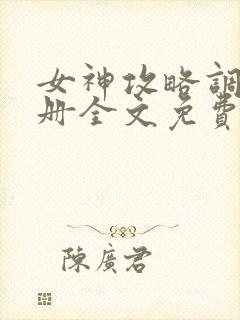 女神攻略調
册全文免費
陳廣君